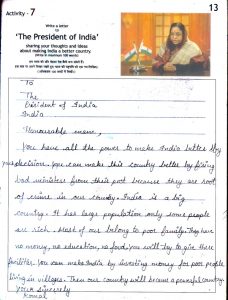 13
Activity - 7
Write a letter
to
'The President of India'
sharing your thoughts and ideas
about making India a better country.
To
The
President of India
India
Honourable mam,
You have all the power to make India better by
your decision. You can make this country better by firing
bad ministers from their post because they are root
of crime in our country. India is a big
country. It has large population only some people
are rich. Most of our belong to poor family. They have
no money, no education, no food. you will try to give these
facilities. You can make India by investing money for poor people
living in villages. Then our country will became a peaceful country.
Your's sincerely
Komal